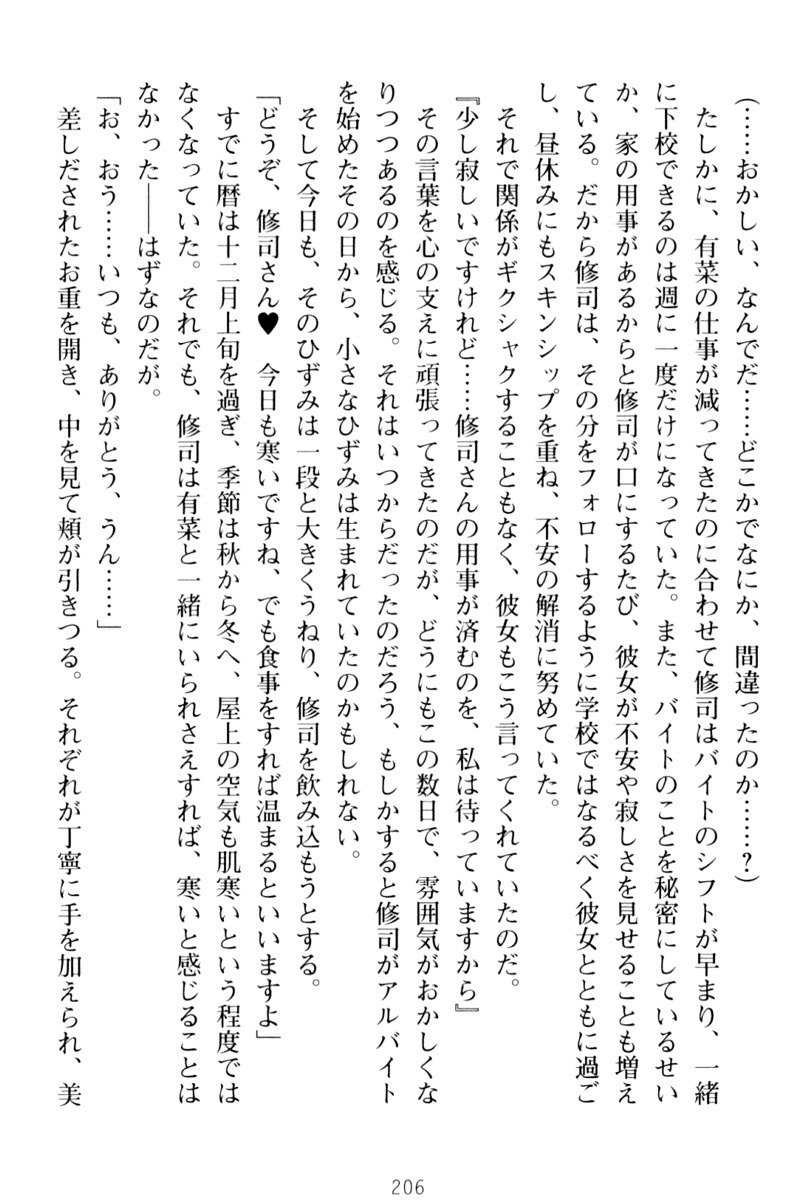 (……おかしい、なんでだ……どこかでなにか、間違ったのか……？)
　たしかに、有菜の仕事が減ってきたのに合わせて修司はバイトのシフトが早まり、一緒
に下校できるのは週に一度だけになっていた。また、バイトのことを秘密にしているせい
か、家の用事があるからと修司が口にするたび、彼女が不安や寂しさを見せることも増え
ている。だから修司は、その分をフォローするように学校ではなるべく彼女とともに過ご
し、昼休みにもスキンシップを重ね、不安の解消に努めていた。
　それで関係がギクシャクすることもなく、彼女もこう言ってくれていたのだ。
『少し寂しいですけれど……修司さんの用事が済むのを、私は待っていますから』
　その言葉を心の支えに頑張ってきたのだが、どうにもこの数日で、雰囲気がおかしくな
りつつあるのを感じる。それはいつからだったのだろう、もしかすると修司がアルバイト
を始めたその日から、小さなひずみは生まれていたのかもしれない。
　そして今日も、そのひずみは一段と大きくうねり、修司を飲み込もうとする。
「どうぞ、修司さん♥　今日も寒いですね、でも食事をすれば温まるといいますよ」
　すでに暦は十二月上旬を過ぎ、季節は秋から冬へ、屋上の空気も肌寒いという程度では
なくなっていた。それでも、修司は有菜と一緒にいられさえすれば、寒いと感じることは
なかった――はずなのだが。
「お、おう……いつも、ありがとう、うん……」
　差しだされたお重を開き、中を見て頬が引きつる。それぞれが丁寧に手を加えられ、美
206